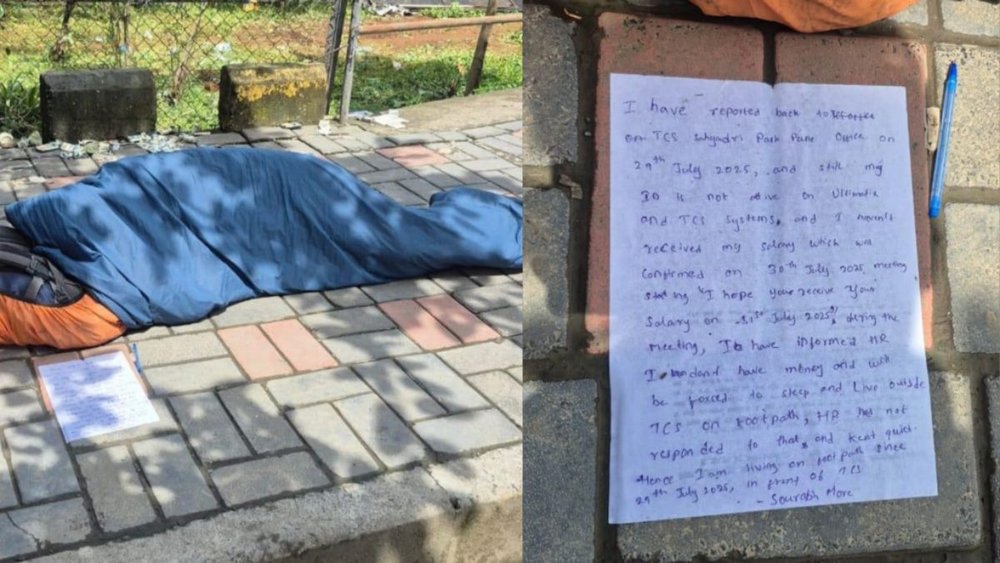 I have reported back to office
on TCS Sahyadri Park Pune Office on
29th July 2025, and still my
ID is not active on Ultimatix
and TCS systems, and I haven't
received my salary which was
confirmed on 30th July 2025, meeting
stating "I hope you receive your
Salary on 31st July 2025", during the
meeting, I have informed HR
I don't have money and will
be forced to sleep and Live outside
TCS on footpath, HR has not
responded to that, and kept quiet.
Hence I am living on footpath since
29th July 2025, in front of TCS
- Sourabh More